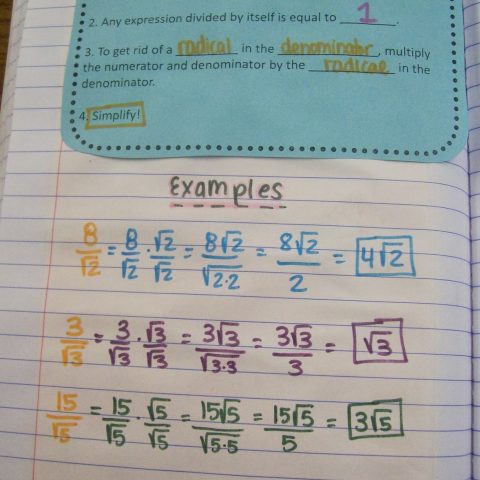 2. Any expression divided by itself is equal to 1.
3. To get rid of a radical in the denominator, multiply
the numerator and denominator by the radical in the
denominator.
4. Simplify!
Examples
8/√2 = 8/√2 · √2/√2 = 8√2/√2·2 = 8√2/2 = 4√2
3/√3 = 3/√3 · √3/√3 = 3√3/√3·3 = 3√3/3 = √3
15/√5 = 15/√5 · √5/√5 = 15√5/√5·5 = 15√5/5 = 3√5